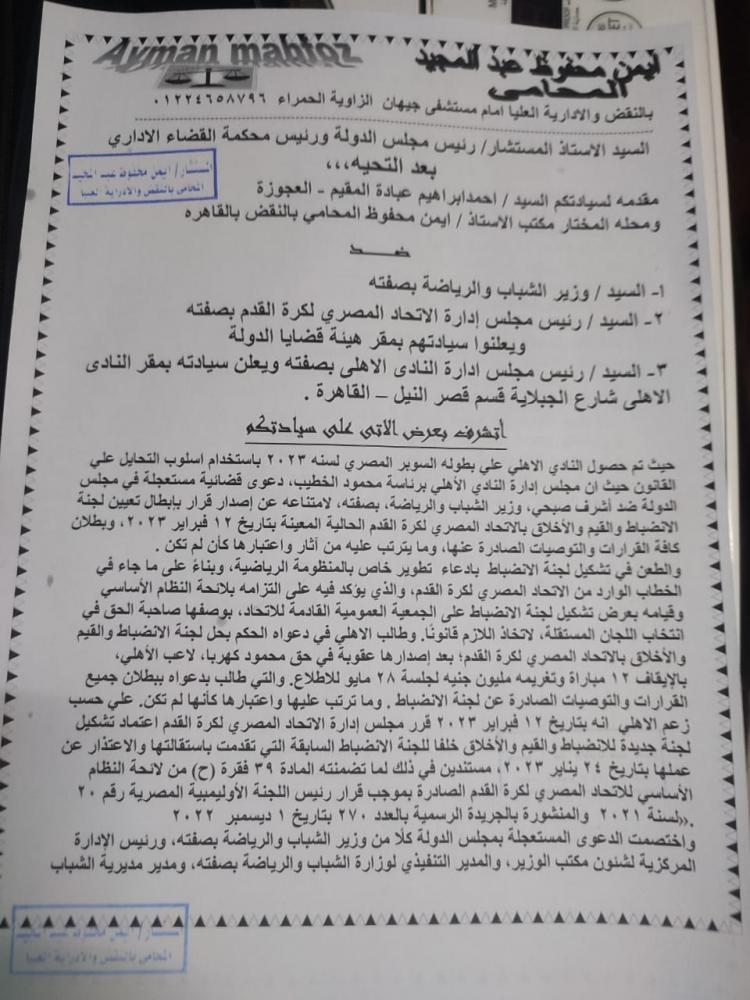 Ayman mahfoz
ايمن محفوظ عبد المجيد
المحامى
بالنقض والادارية العليا امام مستشفى جيهان الزاوية الحمراء ٠١٢٢٤٦٥٨٧٩٦
السيد الاستاذ المستشار/ رئيس مجلس الدولة ورئيس محكمة القضاء الاداري
بعد التحيه،،،
المستشار/ ايمن محفوظ عبد المجيد
المحامى بالنقض والادراية العليا
مقدمه لسيادتكم السيد / احمدابراهيم عبادة المقيم - العجوزة
ومحله المختار مكتب الاستاذ / ايمن محفوظ المحامي بالنقض بالقاهره
ضـــد
١- السيد / وزير الشباب والرياضة بصفته
٢- السيد / رئيس مجلس إدارة الاتحاد المصري لكرة القدم بصفته
ويعلنوا سيادتهم بمقر هيئة قضايا الدولة
٣- السيد / رئيس مجلس ادارة النادى الاهلى بصفته ويعلن سيادته بمقر النادى
الاهلى شارع الجبلاية قسم قصر النيل – القاهرة .
أتشرف بعرض الاتى على سيادتكم
حيث تم حصول النادي الاهلي علي بطوله السوبر المصري لسنه ٢٠٢٣ باستخدام اسلوب التحايل علي
القانون حيث ان مجلس إدارة النادي الأهلي برئاسة محمود الخطيب، دعوى قضائية مستعجلة في مجلس
الدولة ضد أشرف صبحي، وزير الشباب والرياضة، بصفته، لامتناعه عن إصدار قرار بإبطال تعيين لجنة
الانضباط والقيم والأخلاق بالاتحاد المصري لكرة القدم الحالية المعينة بتاريخ ١٢ فبراير ٢٠٢٣، وبطلان
كافة القرارات والتوصيات الصادرة عنها، وما يترتب عليه من آثار واعتبارها كأن لم تكن .
والطعن في تشكيل لجنة الانضباط بادعاء تطوير خاص بالمنظومة الرياضية، وبناءً على ما جاء في
الخطاب الوارد من الاتحاد المصري لكرة القدم، والذي يؤكد فيه على التزامه بلائحة النظام الأساسي
وقيامه بعرض تشكيل لجنة الانضباط على الجمعية العمومية القادمة للاتحاد، بوصفها صاحبة الحق في
انتخاب اللجان المستقلة، لاتخاذ اللازم قانونًا. وطالب الاهلي في دعواه الحكم بحل لجنة الانضباط والقيم
والأخلاق بالاتحاد المصري لكرة القدم؛ بعد إصدارها عقوبة في حق محمود كهربا، لاعب الأهلي،
بالإيقاف ١٢ مباراة وتغريمه مليون جنيه لجلسة ٢٨ مايو للاطلاع. والتي طالب بدعواه ببطلان جميع
القرارات والتوصيات الصادرة عن لجنة الانضباط . وما ترتب عليها واعتبارها كأنها لم تكن. علي حسب
زعم الاهلي انه بتاريخ ١٢ فبراير ٢٠٢٣ قرر مجلس إدارة الاتحاد المصري لكرة القدم اعتماد تشكيل
لجنة جديدة للانضباط والقيم والأخلاق خلفا للجنة الانضباط السابقة التي تقدمت باستقالتها والاعتذار عن
عملها بتاريخ ٢٤ يناير ٢٠٢٣، مستندين في ذلك لما تضمنته المادة ٣٩ فقرة (ح) من لائحة النظام
الأساسي للاتحاد المصري لكرة القدم الصادرة بموجب قرار رئيس اللجنة الأوليمبية المصرية رقم ٢٠
.«لسنة ٢٠٢١ والمنشورة بالجريدة الرسمية بالعدد ٢٧٠ بتاريخ ١ ديسمبر ٢٠٢٢
واختصمت الدعوى المستعجلة بمجلس الدولة كلًا من وزير الشباب والرياضة بصفته، ورئيس الإدارة
المركزية لشئون مكتب الوزير، والمدير التنفيذي لوزارة الشباب والرياضة بصفته، ومدير مديرية الشباب
المستشار/ ايمن محفوظ عبد المجيد
المحامى بالنقض والادراية العليا